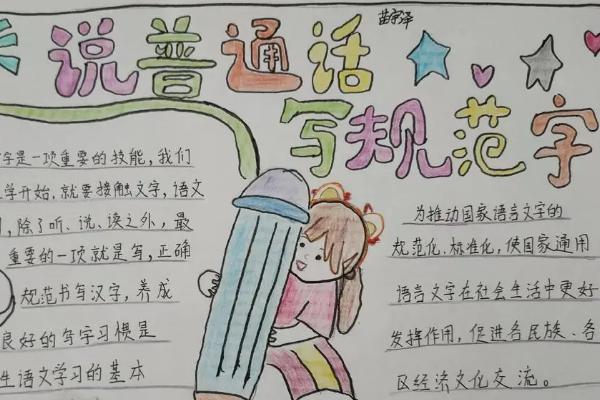 苗宇泽
说普通话
写规范字
字是一项重要的技能,我们
学开始,就要接触文字,语文
,除了听、说、读之外,最
重要的一项就是写,正确
规范书写汉字,养成
良好的写字习惯是
生语文学习的基本
为推动国家语言文字的
规范化、标准化,使国家通用
语言文字在社会生活中更好
发挥作用,促进各民族、各
区经济文化交流。